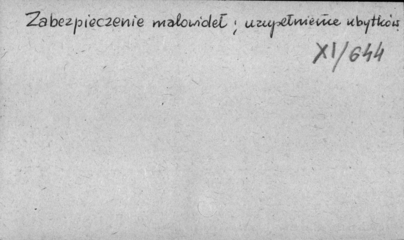 Zabezpieczenie malowideł; uzupełnienie ubytków
XI/644